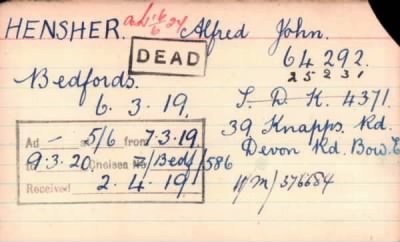 HENSHER. Alfred John.
DEAD
64292.
25231
Bedfords.
6.3.19. S.D.K. 4371.
39 Knapps. Rd.
Devon Rd. Bow. E
Ad — 5/6 from 7.3.19.
9.3.20 /Bedf/586
Received 2.4.19
W M/376684